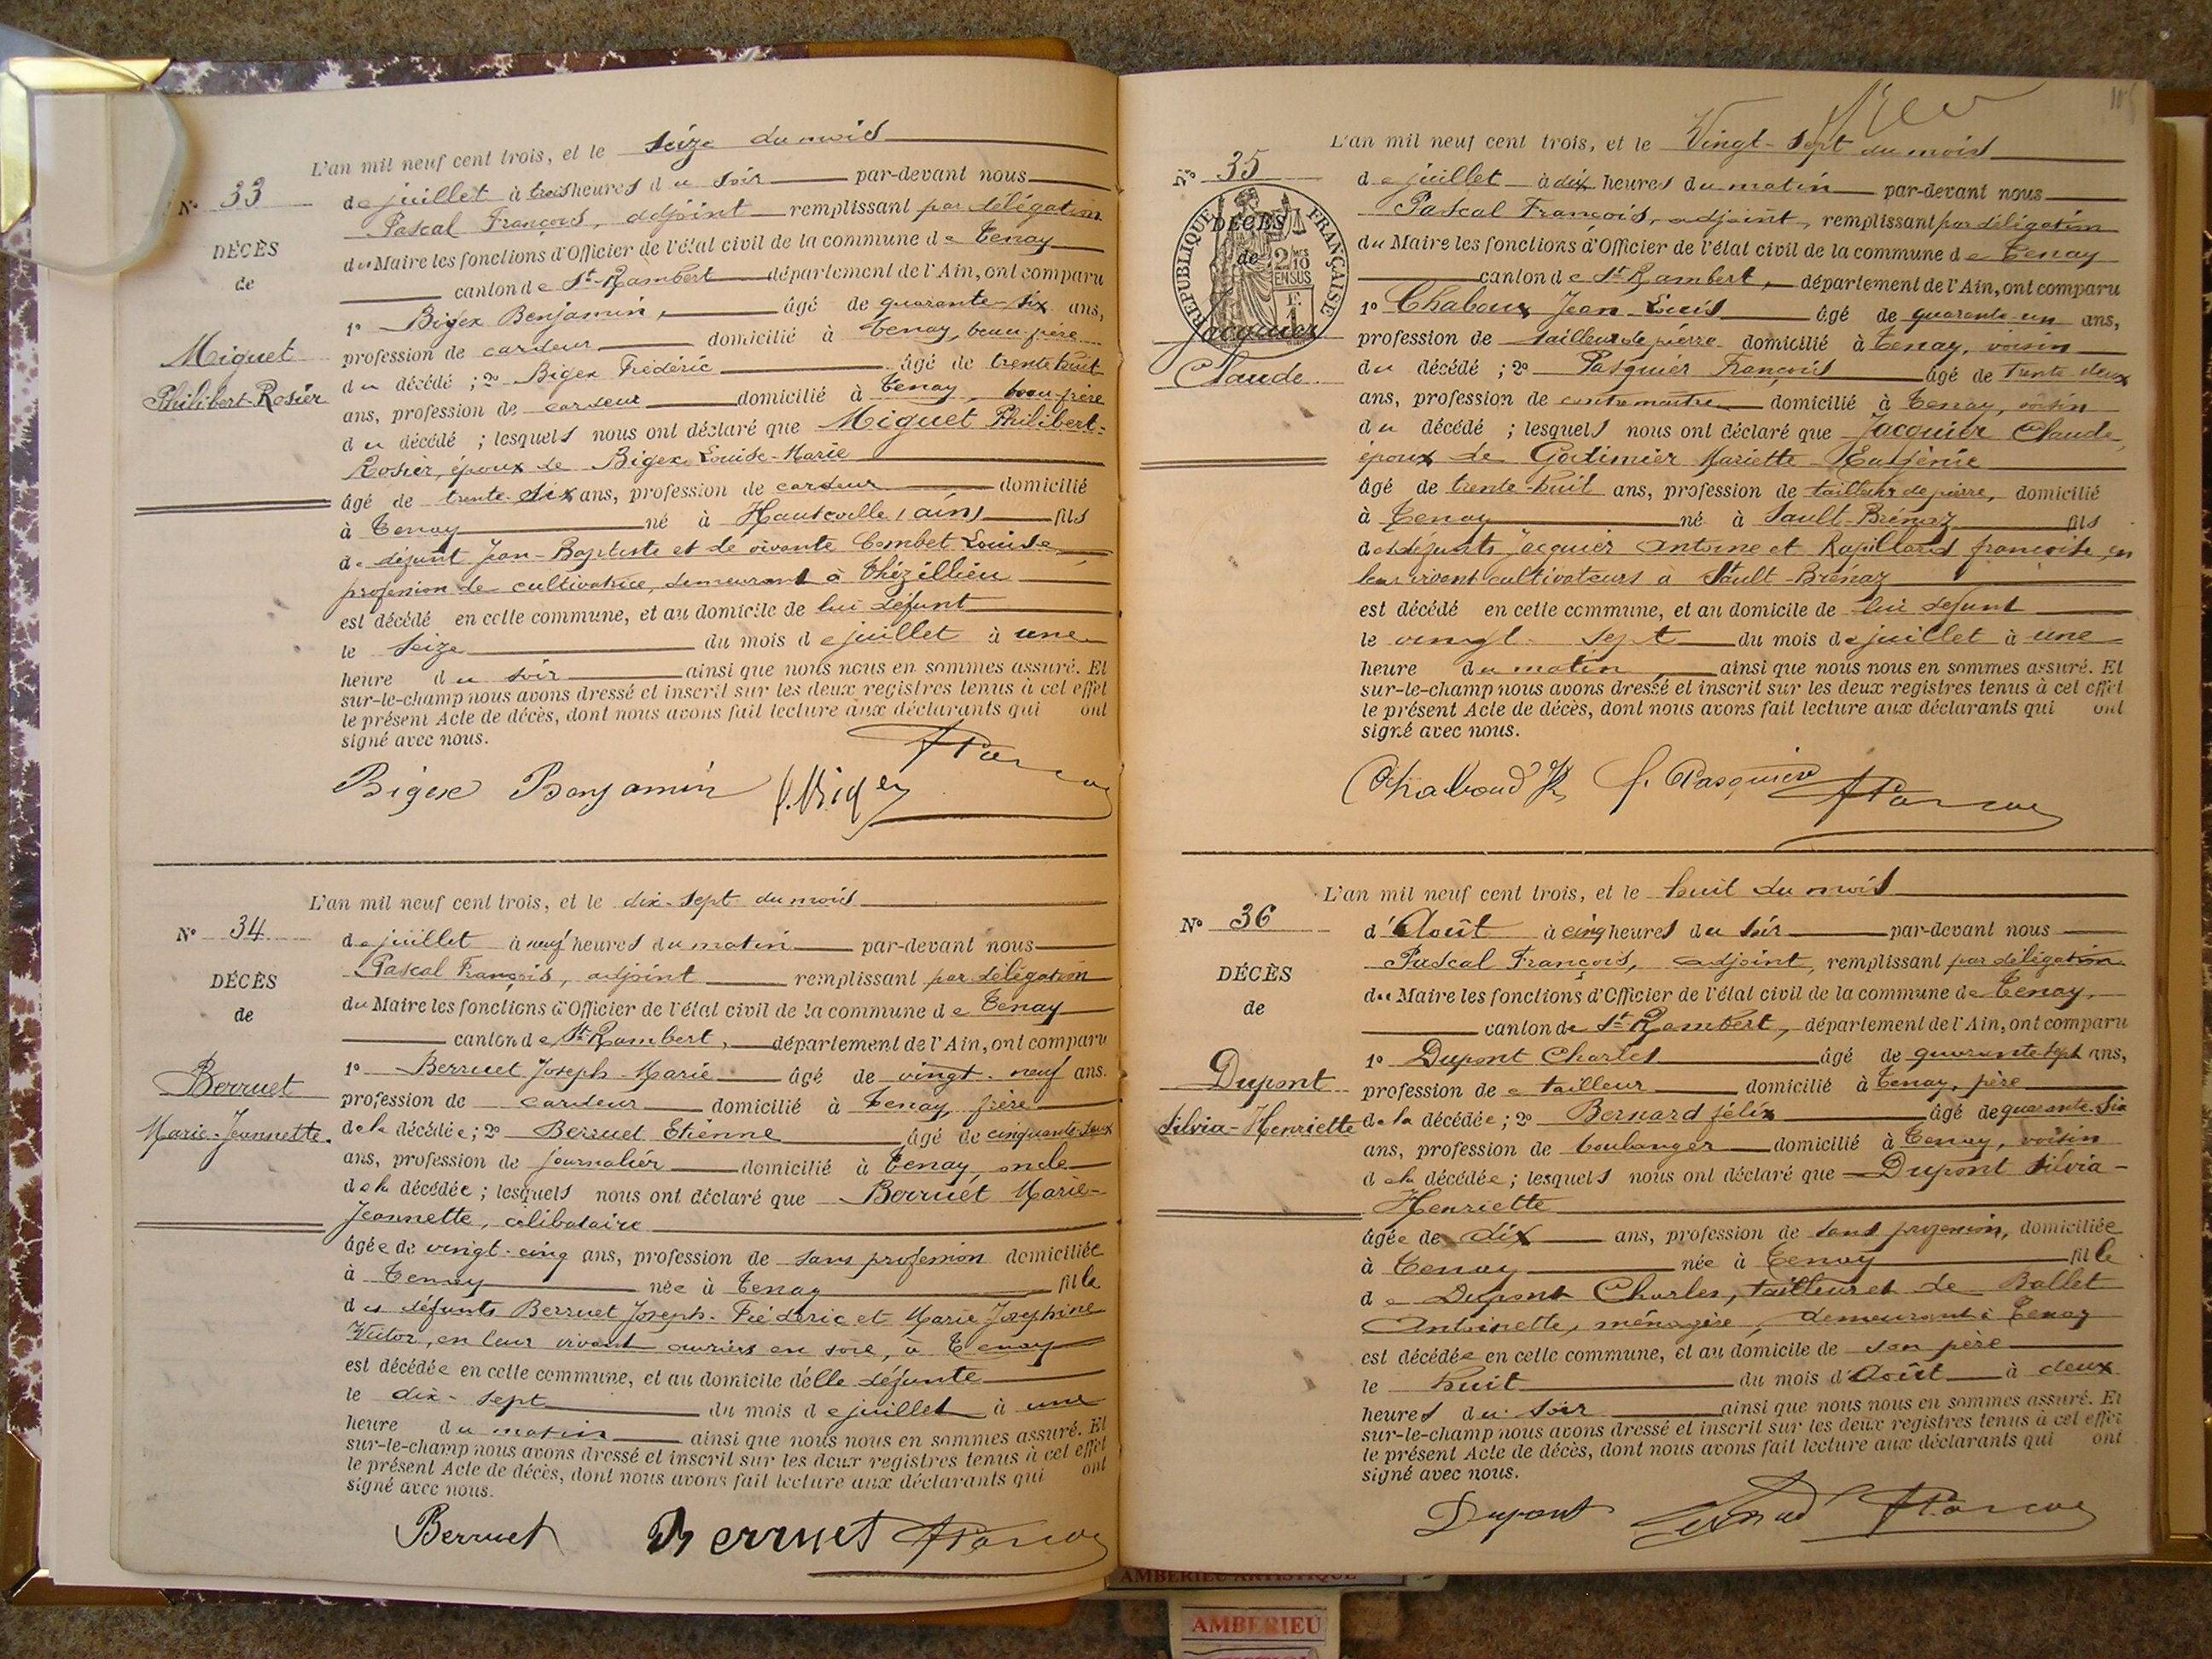 L'an mil neuf cent trois, et le seize du mois
N° 33
de juillet à trois heures du soir par-devant nous
Pascal François, adjoint remplissant par délégation
DÉCÈS
du Maire les fonctions d'Officier de l'état civil de la commune de Tenay
de
canton de St-Rambert département de l'Ain, ont comparu
1° Bigex Benjamin, âgé de quarante-six ans,
Miguet
profession de cardeur domicilié à Tenay, beau père
Philibert-Rosier
du décédé ; 2° Bigex Frédéric âgé de trente huit
ans, profession de cardeur domicilié à Tenay, beau frère
du décédé ; lesquels nous ont déclaré que Miguet Philibert-
Rosier, époux de Bigex Louise-Marie
âgé de trente-six ans, profession de cardeur domicilié
à Tenay né à Hauteville (ain) fils
de défunt Jean-Baptiste et de vivante Combet Louise
profession de cultivatrice, demeurant à Thézillieu
est décédé en cette commune, et au domicile de lui défunt
le seize du mois de juillet à une
heure du soir ainsi que nous nous en sommes assuré. Et
sur-le-champ nous avons dressé et inscrit sur les deux registres tenus à cet effet
le présent Acte de décès, dont nous avons fait lecture aux déclarants qui ont
signé avec nous.
Bigex Benjamin
L'an mil neuf cent trois, et le dix-sept du mois
N° 34
de juillet à neuf heures du matin par-devant nous
Pascal François, adjoint remplissant par délégation
DÉCÈS
du Maire les fonctions d'Officier de l'état civil de la commune de Tenay
de
canton de St-Rambert, département de l'Ain, ont comparu
1° Berruet Joseph-Marie âgé de vingt-neuf ans.
Berruet
profession de cardeur domicilié à Tenay, frère
Marie-Jeannette.
de la décédée ; 2° Berruet Etienne âgé de cinquante-deux
ans, profession de journalier domicilié à Tenay, oncle
de la décédée ; lesquels nous ont déclaré que Berruet Marie-
Jeannette, célibataire
âgée de vingt-cinq ans, profession de sans profession domiciliée
à Tenay née à Tenay fille
des défunts Berruet Joseph-Frédéric et Marie Josephine
en leur vivant ouvriers en soie, à Tenay
est décédée en cette commune, et au domicile d'elle défunte
le dix-sept du mois de juillet à une
heure du matin ainsi que nous nous en sommes assuré. Et
sur-le-champ nous avons dressé et inscrit sur les deux registres tenus à cet effet
le présent Acte de décès, dont nous avons fait lecture aux déclarants qui ont
signé avec nous.
Berruet Berruet
L'an mil neuf cent trois, et le Vingt-sept du mois
N° 35
de juillet à dix heures du matin par-devant nous
Pascal François, adjoint, remplissant par délégation
RÉPUBLIQUE FRANÇAISE
DÉCÈS
du Maire les fonctions d'Officier de l'état civil de la commune de Tenay
de
2/10 EN SUS
canton de St-Rambert, département de l'Ain, ont comparu
1° Chaboux Jean Louis âgé de quarante un ans,
Jacquier
profession de tailleur de pierre domicilié à Tenay, voisin
Claude
du décédé ; 2° Pasquier François âgé de trente deux
ans, profession de contremaitre domicilié à Tenay, voisin
du décédé ; lesquels nous ont déclaré que Jacquier Claude
époux de Gotimier Mariette Eugénie
âgé de trente-huit ans, profession de tailleur de pierre, domicilié
à Tenay né à Sault-Brénaz fils
des défunts Jacquier Antoine et Rapillard françoise, en
leur vivant cultivateurs à Sault-Brénaz
est décédé en cette commune, et au domicile de lui défunt
le vingt-sept du mois de juillet à une
heure du matin, ainsi que nous nous en sommes assuré. Et
sur-le-champ nous avons dressé et inscrit sur les deux registres tenus à cet effet
le présent Acte de décès, dont nous avons fait lecture aux déclarants qui ont
signé avec nous.
f. Pasquier
L'an mil neuf cent trois, et le huit du mois
N° 36
d'Août à cinq heures du soir par-devant nous
Pascal François, adjoint, remplissant par délégation
DÉCÈS
du Maire les fonctions d'Officier de l'état civil de la commune de Tenay,
de
canton de St-Rambert, département de l'Ain, ont comparu
1° Dupont Charles âgé de quarante sept ans,
Dupont
profession de tailleur domicilié à Tenay, père
Silvia-Henriette
de la décédée ; 2° Bernard félix âgé de quarante-six
ans, profession de boulanger domicilié à Tenay, voisin
de la décédée ; lesquels nous ont déclaré que Dupont Silvia-
Henriette
âgée de dix ans, profession de sans profession, domiciliée
à Tenay née à Tenay fille
de Dupont Charles, tailleur et de Ballet
Antoinette, ménagère, demeurant à Tenay
est décédée en cette commune, et au domicile de son père
le huit du mois d'Août à deux
heures du soir ainsi que nous nous en sommes assuré. Et
sur-le-champ nous avons dressé et inscrit sur les deux registres tenus à cet effet
le présent Acte de décès, dont nous avons fait lecture aux déclarants qui ont
signé avec nous.
Dupont
AMBERIEU ARTISTIQUE
AMBERIEU